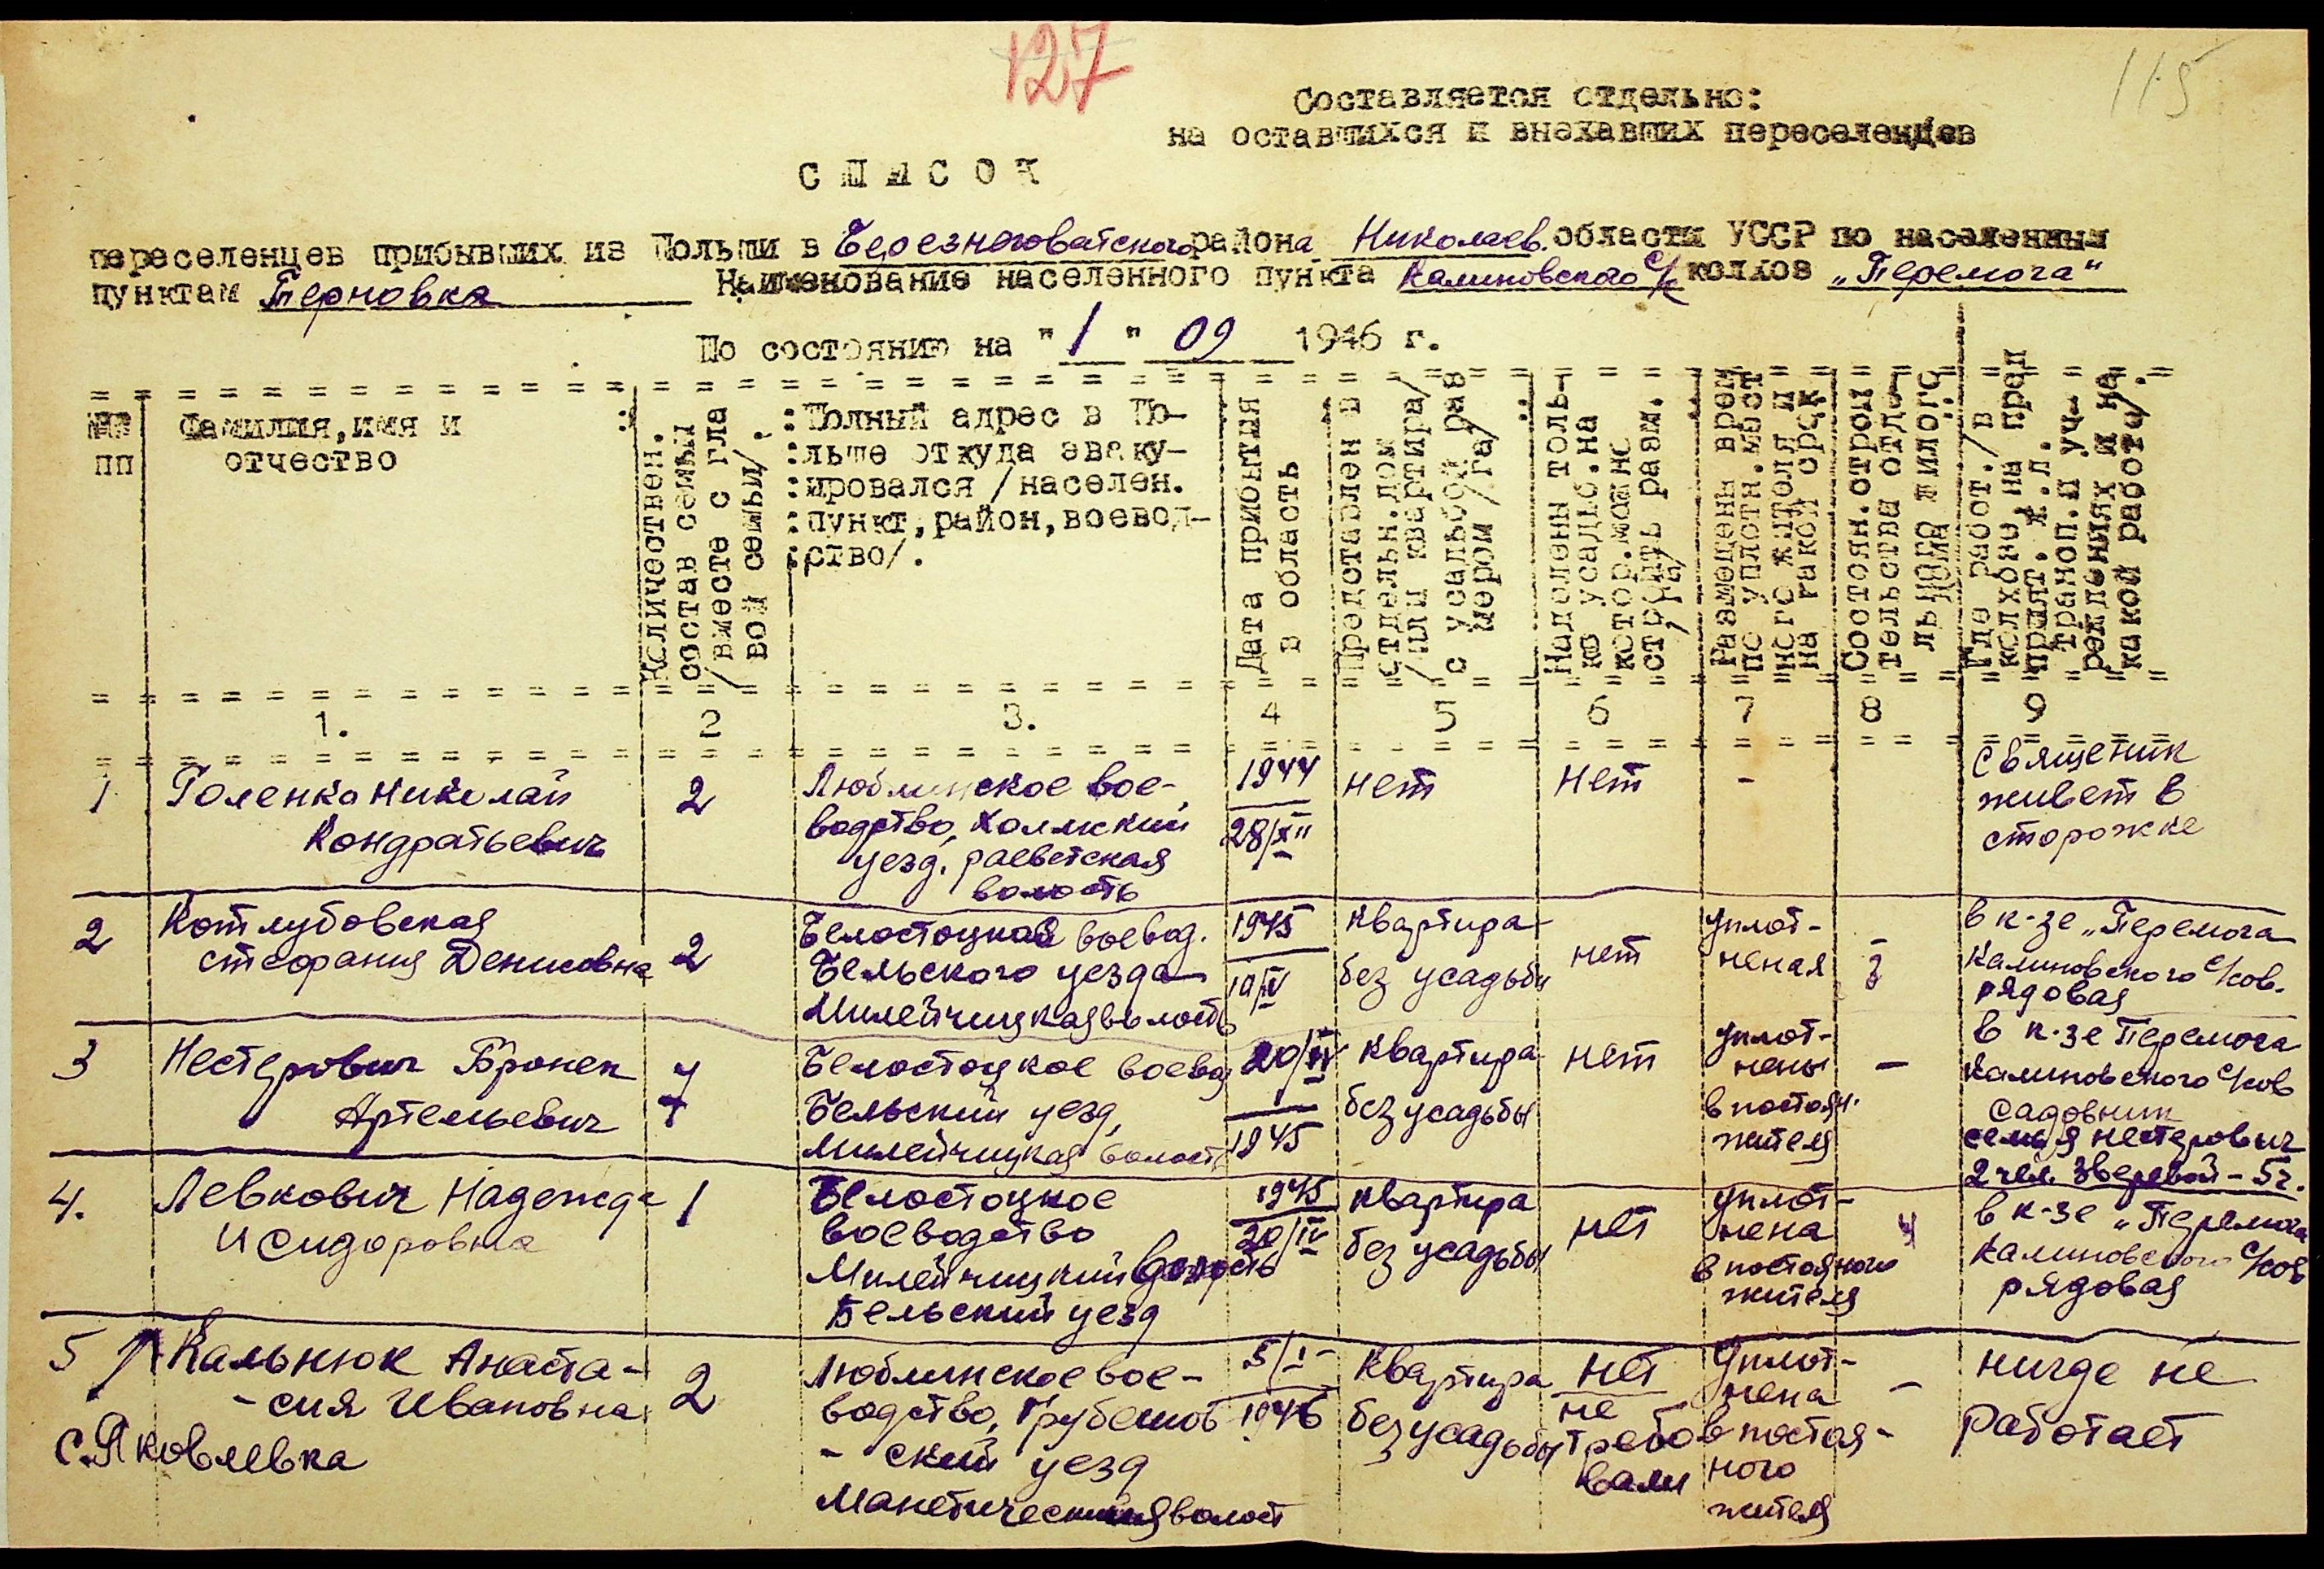 127
115
Составляется отдельно:
на оставшихся и внехавших переселенцев
СПИСОК
переселенцев прибывших из Польши в Березнеговатского района Николаев. области УССР по населенным
пунктам Терновка Наименование населенного пункта Калиновского с/с колхоз „Перемога"
По состоянию на "1" 09 1946 г.
№№ пп
Фамилия, имя и отчество
Количествен. состав семьи /вместе с главой семьи/.
Полный адрес в По-
льше откуда эваку-
ировался /населен.
пункт, район, воевод-
ство/.
Дата прибытия в область
Предоставлен в отдельн. дом /или квартира/ с усадьбой раз мером /га/
Наделены толь-ко усадьб. на котор. можно строить разм. /га/
Размещены врем по уплотн. мест ного жителя и на какой срок
Состоян. строи тельства отде льного жилого дома
Где работ. /в колхозе, на пред прият. ж.д. трансп. и уч- реждениях и на какой работе/.
1. 2 3. 4 5 6 7 8 9
1 Голенко Николай
Кондратьевич
2
Люблинское вое-
водство, Холмский
уезд. раеветская
волость
1944
28/XII
нет
нет
-
Священик
живет в
сторожке
2 Котлубовская
Стефания Денисовна
2
Белостоцкая воевод.
Бельского уезда
Милейчицкая волость
1945
10/IV
Квартира
без усадьбы
нет
уплот-
неная
-
в к-зе „Перемога
Калиновского с/сов.
рядовая
3 Нестерович Бронек
Артемьевич
7
Белостоцкое воевод
Бельский уезд,
Милейчицкая волость
20/IV
1945
Квартира
без усадьбы
нет
уплот-
нены
в постоян.
жителя
-
в к-зе Перемога
Калиновского с/сов
Садовник
семья Нестерович
2 чел. Зверевой - 5 ч.
4. Левкович Надежда
Исидоровна
1
Белостоцкое
воеводство
Милейчицкий волость
Бельский уезд
1945
20/IV
Квартира
без усадьбы
нет
уплот-
нена
в постояного
жителя
в к-зе „Перемога
Калиновского с/сов
рядовая
5 Кальнюк Анаста-
-сия Ивановна
с. Яковлевка
2
Люблинское вое-
водство, Грубешов
- ский уезд
волост
5/I-
1946
Квартира
без усадьбы
нет
не
требо
вали
уплот-
нена
в постоя-
ного
жителя
-
нигде не
работает